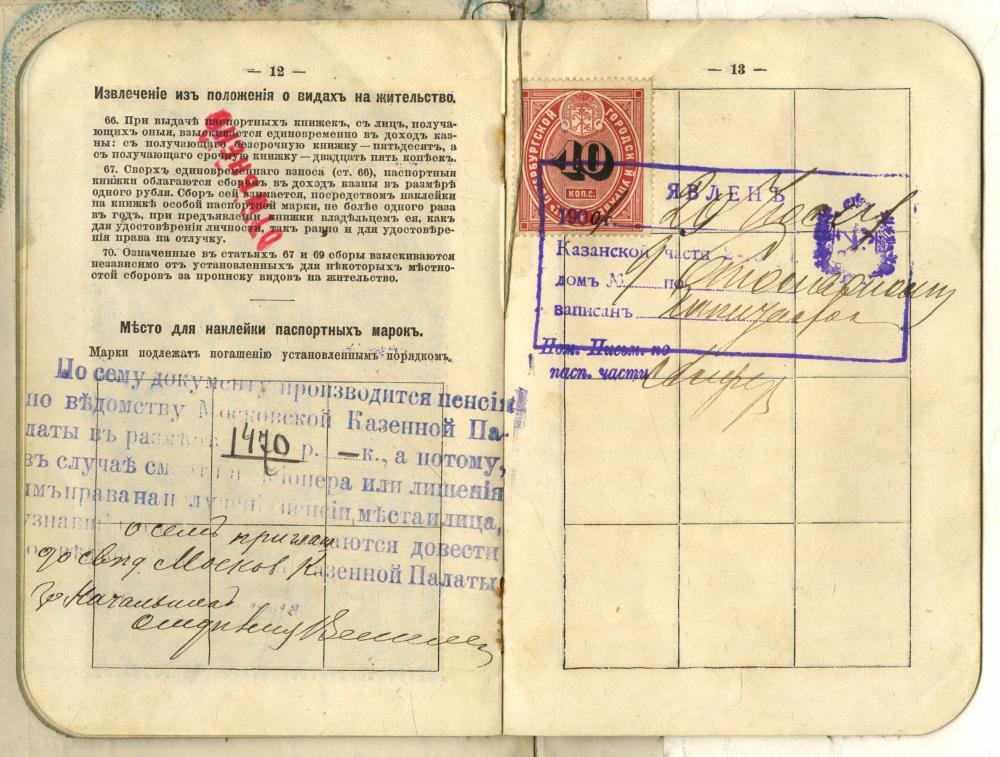 — 12 —
Извлеченіе изъ положенія о видахъ на жительство.
66. При выдачѣ паспортныхъ книжекъ, съ лицъ, получа-
ющихъ оныя, взыскивается единовременно въ доход каз-
ны: съ получающаго безсрочную книжку — пятьдесятъ, а
съ получающаго срочную книжку — двадцать пять копѣекъ.
67. Сверхъ единовременнаго взноса (ст. 66), паспортныя
книжки облагаются сборомъ въ доходъ казны въ размѣрѣ
одного рубля. Сборъ сей взимается, посредствомъ наклейки
на книжкѣ особой паспортной марки, не болѣе одного раза
въ годъ, при предъявленіи книжки владѣльцемъ ея, какъ
для удостовѣренія личности, такъ равно и для удостовѣре-
нія права на отлучку.
70. Означенные въ статьяхъ 67 и 69 сборы взыскиваются
независимо отъ установленныхъ для нѣкоторыхъ мѣстно-
стей сборовъ за прописку видовъ на жительство.
Мѣсто для наклейки паспортныхъ марокъ.
Марки подлежатъ погашенію установленнымъ порядкомъ.
По сему документу производится пенсія
по вѣдомству Московской Казенной Па-
латы въ размѣрѣ 1470 р. — к., а потому,
въ случаѣ смерти пенсіонера или лишенія
имъ права на полученіе пенсіи, мѣста и лица,
узнавшія о семъ приглашаются довести
до свѣд. Москов. Казенной Палаты
За Начальника
— 13 —
ГОРОДСКОЙ
40
КОП. С.
ЯВЛЕНЪ
190
Казанской части
домъ № по
записанъ
Пом. Письм. по
пасп. части